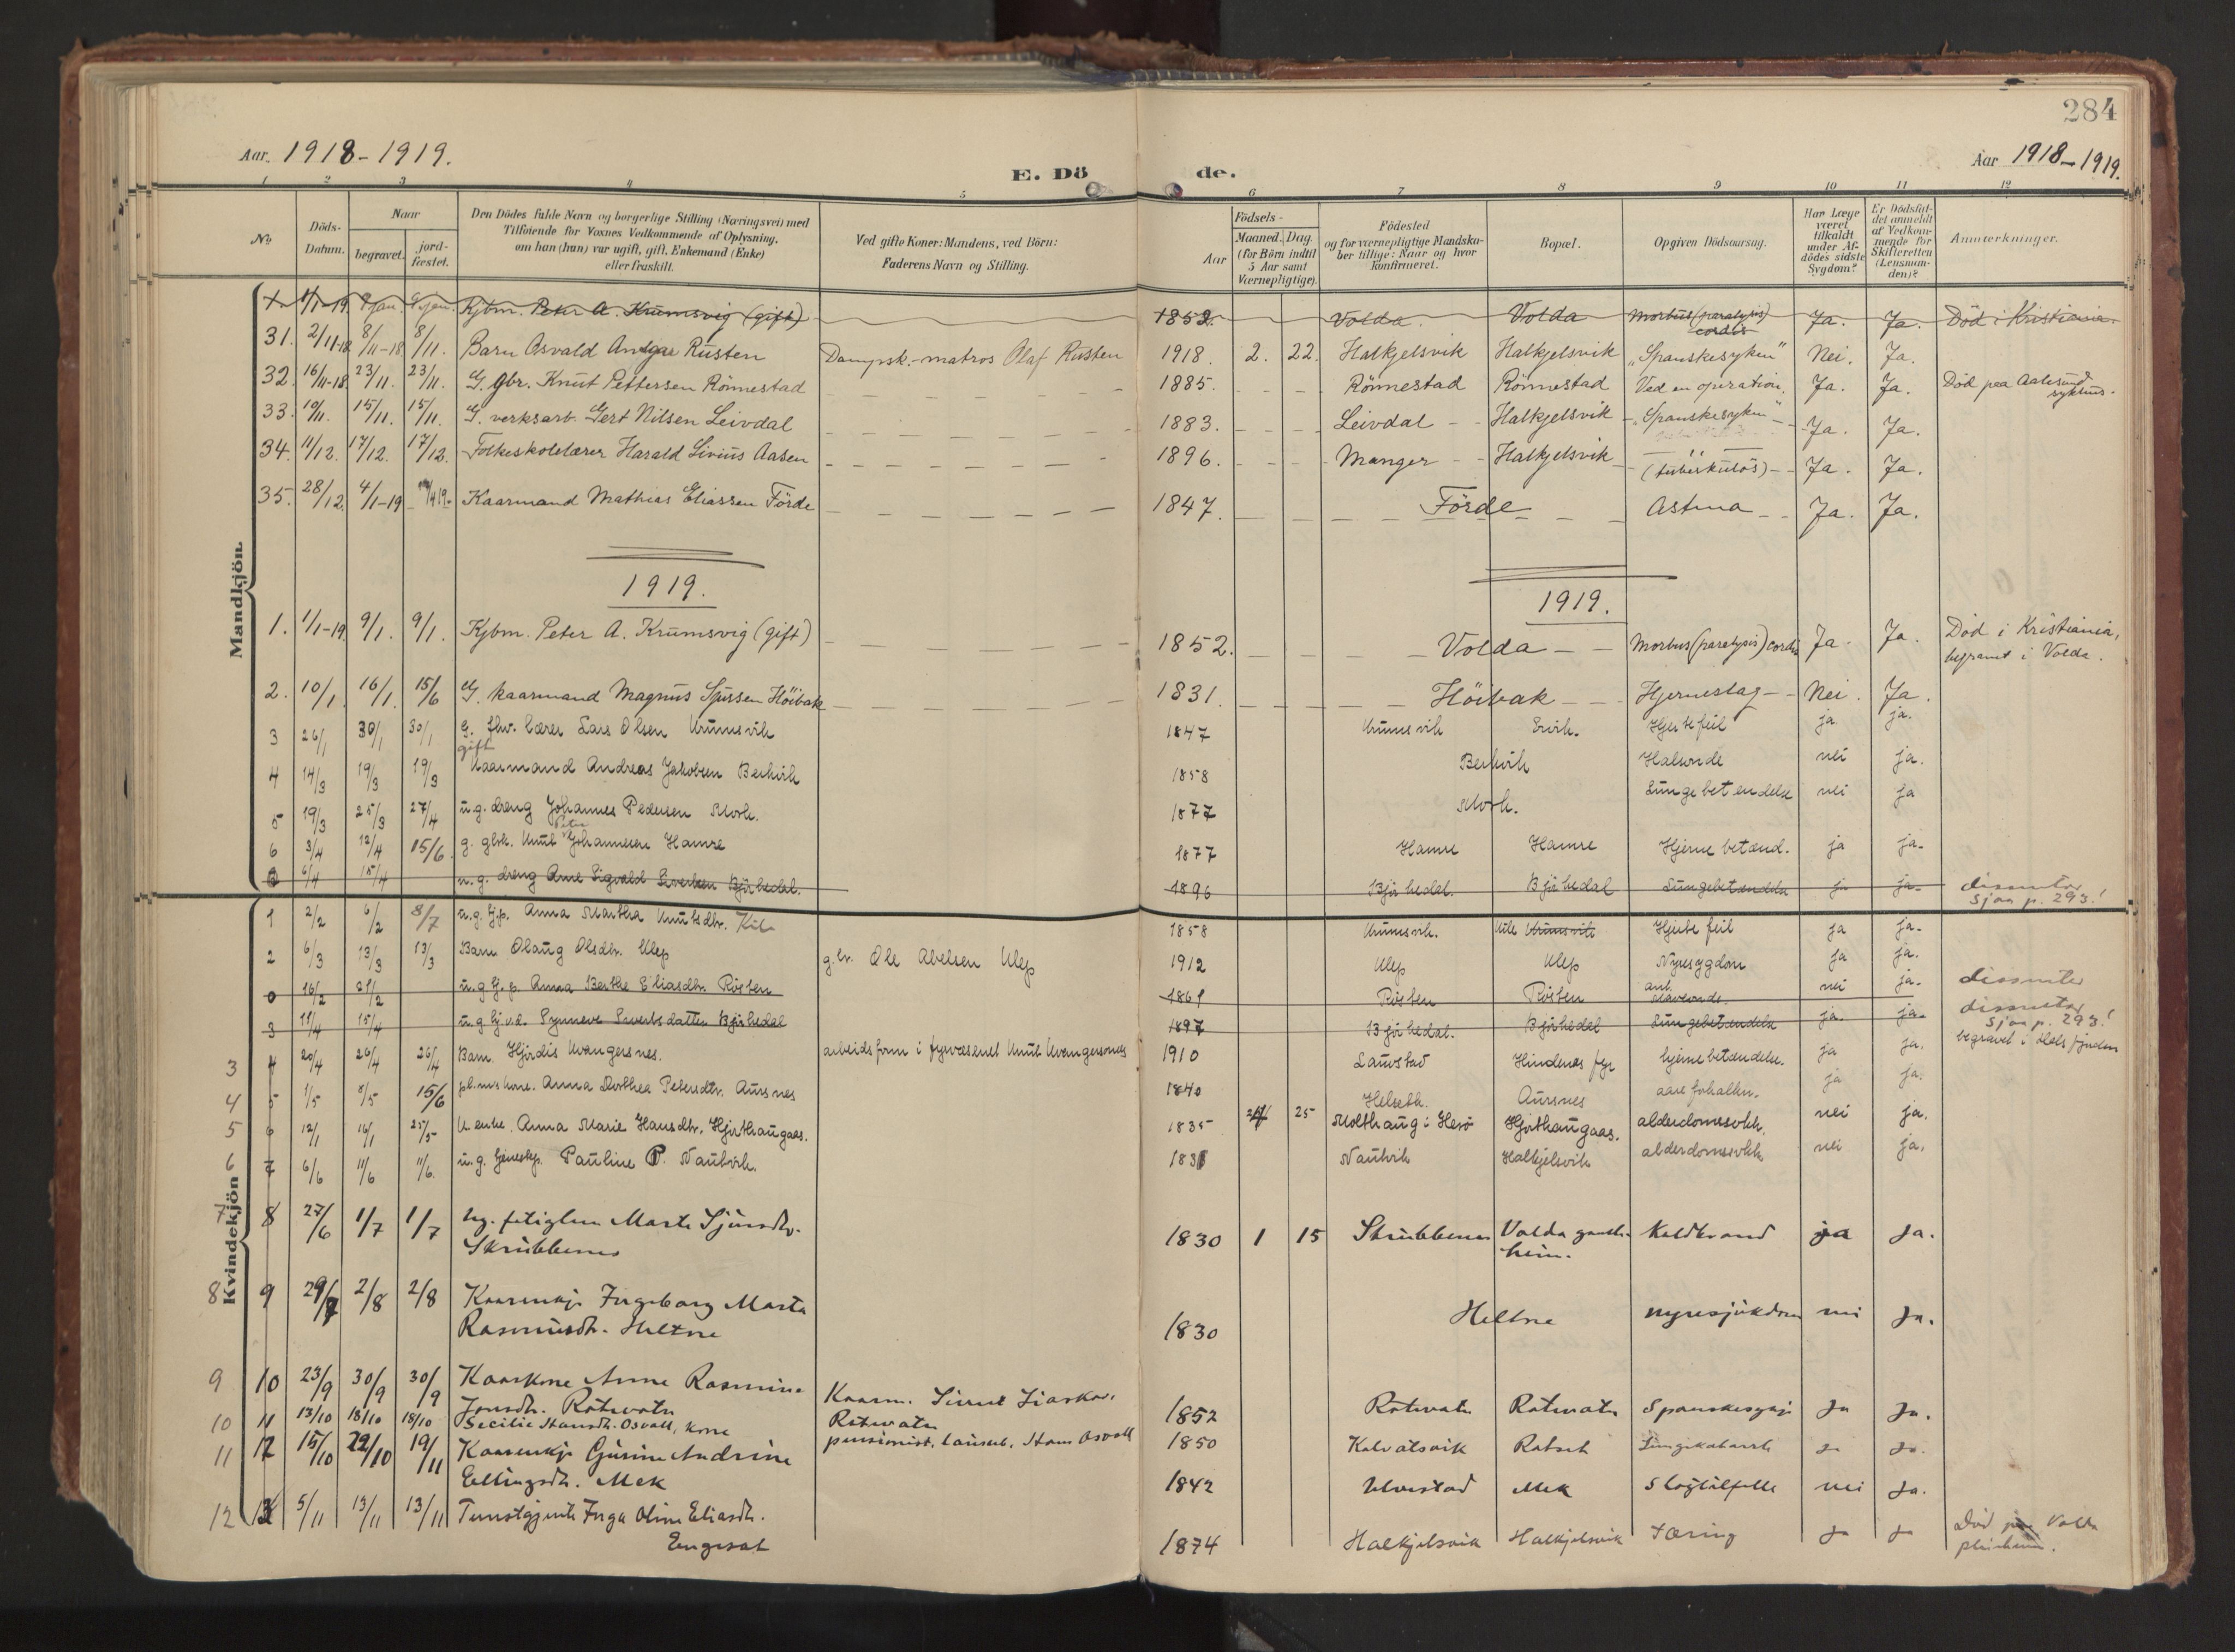 284
Aar. 1918-1919.
E. Dö de.
Aar 1918-1919.
1 2 3 4 5 6 7 8 9 10 11 12
No
Döds-Datum.
Naar
begravet.
jord-fæstet.
Den Dödes fulde Navn og borgerlige Stilling (Næringsvei) med
Tilföiende for Voxnes Vedkommende af Oplysning,
om han (hun) var ugift, gift, Enkemand (Enke)
eller fraskilt.
Ved gifte Koner: Mandens, ved Börn:
Faderens Navn og Stilling.
Födsels-
Aar
Maaned. Dag.
(for Börn indtil
5 Aar samt
Værnepligtige).
Födested
og for værnepligtige Mandska-
ber tillige: Naar og hvor
konfirmeret.
Bopæl.
Opgiven Dödsaarsag.
Har Læge
været
tilkaldt
under Af-
dödes sidste
Sygdom?
Er Dödsfal-
det anmeldt
af Vedkom-
mende for
Skifteretten
(Lensman-
den)?
Anmærkninger.
Mandkjön.
1/1-19 9 jan. 9 jan. Kjbm. Peter A. Krumsvig (gift) 1852. Volda. Volda Morbus (paralysis) cordis Ja. Ja. Död i Kristiania.
31. 2/11-18 8/11-18 8/11. Barn Osvald Ansgar Rusten Dampsk.-matros Olaf Rusten 1918. 2. 22. Halkjelsvik Halkjelsvik "Spanskesyken" Nei. Ja.
32. 16/11-18 23/11. 23/11. G. gbr. Knut Pettersen Rönnestad 1885. Rönnestad Rönnestad Ved en operation. Ja. Ja. Död paa Aalesund sykhus.
33. 10/11. 15/11. 15/11. G. verksarb. Gert Nilsen Leivdal 1883. Leivdal Halkjelsvik "Spanskesyken" Ja. Ja.
34. 11/12. 17/12. 17/12. Folkeskolelærer Harald Livius Aasen 1896. Manger Halkjelsvik (tuberkulös) Ja. Ja.
35. 28/12. 4/1-19 Kaarmand Mathias Eliassen Förde 1847. Förde Astma Ja. Ja.
1919. 1919.
1. 1/1-19 9/1. 9/1. Kjbm. Peter A. Krumsvig (gift) 1852. Volda Morbus (paralysis) cordis Ja. Ja. Död i Kristiania, begravet i Volda.
2. 10/1 16/1. 15/6 G. kaarmand Magnus Sjursen Höibak 1831. Höibak Hjerneslag Nei. Ja.
3 26/1 30/1 30/1 G. fhv. lærer Lars Olsen Krumsvik 1847 Krumsvik Ervik. Hjertefeil ja ja.
4 14/3 19/3 19/3 gift Kaarmand Andreas Jakobsen Berkvik 1858 Berkvik Halsonde nei ja.
5 19/3 25/3 27/4 u.g. dreng Johannes Pedersen Mork. 1877 Mork. Lungebetendelse nei ja
6 3/4 12/4 15/6. g. gbrk. Knut Peter Johannesen Hamre 1877 Hamre Hamre Hjernebetænd. ja ja.
6/4 15/4 u.g. dreng Arne Sigvald Sivertsen Bjørkedal. 1896 Bjørkedal. Bjørkedal Lungebetendelse ja ja. dissenter sjaa p. 293!
Kvindekjön
1 2/2 6/2 8/7 u.g. tj.p. Anna Martha Knutsdtr. Kile 1858 Krumsvk. Kile Krumsvik Hjertefeil ja ja.
2 6/3 13/3 13/3 Barn Olaug Olsdtr. Ulep g.br. Ole Abelsen Ulep 1912 Ulep Ulep Nyresygdom ja ja.
0 16/2 21/2 u.g tj.p. Anna Berthe Eliasdtr. Røsten 1861 Røsten Røsten ant. maveonde. nei ja. dissenter
3 11/4 15/4 Synneve Sivertsdatter Bjørkedal 1897 Bjørkedal. Bjørkedal Lungebetendelse ja. ja. dissenter sjaa p. 293!
3 4 20/4 26/4 26/4 Barn. Hjørdis Kvangersnes. arbeidsform i fyrvæsenet Knut Kvangersnes 1910 Lauvstad Hindenes fyr hjernebetændelse. ja ja. begravet i
4 5 1/5 8/5 15/6 Anna Dorthea Petersdtr. Aursnes 1840 Helseth. Aursnes aareforkalkn. ja ja.
5 6 12/1 16/1 25/5 Anna Marie Hansdtr. Hjorthaugaas. 1835 25 Molthaug i Herö Hjorthaugaas. alderdomssvekk. nei ja.
6 7 6/6 11/6 11/6. u.g. Pauline P. Nautvik. 1831 Nautvik Halkjelsvik alderdomssvekk nei ja.
7 8 27/6 1/7 1/7 Ug. fatiglem Marte Sjursdtr.
Skrubbenes 1830 1 15 Skrubbenes Volda gamleheim. Koldbrand ja ja.
8 9 29/7 2/8 2/8 Kaarenkje Ingeborg Marta
Rasmusdtr. Heltne 1830 Heltne nyresjukdom nei ja.
9 10 23/9 30/9 30/9 Kaarkone Anne Rasmine
Jonsdtr. Rotevatn Kaarm. Rotevatn 1852 Rotevatn Rotevatn Spanskesykje Ja Ja.
10 11 13/10 18/10 18/10 Secilie Hansdtr. Osvoll, kone pensionist. Hans Osvoll 1850 Kalvatsvik Rotset Lungekatarrh ja ja.
11 12 15/10 22/10 19/11 Kaarenkje Gurine Andrine
Ellingsdtr. Mek 1842 Ulvestad Mek Slagtilfelle nei ja.
12 13 5/11 13/11 13/11 Tenestgjente Inga Oline Eliasdtr.
Engeset 1874 Halkjelsvik Halkjelsvik Tæring ja ja Død paa Volda pleieheim.